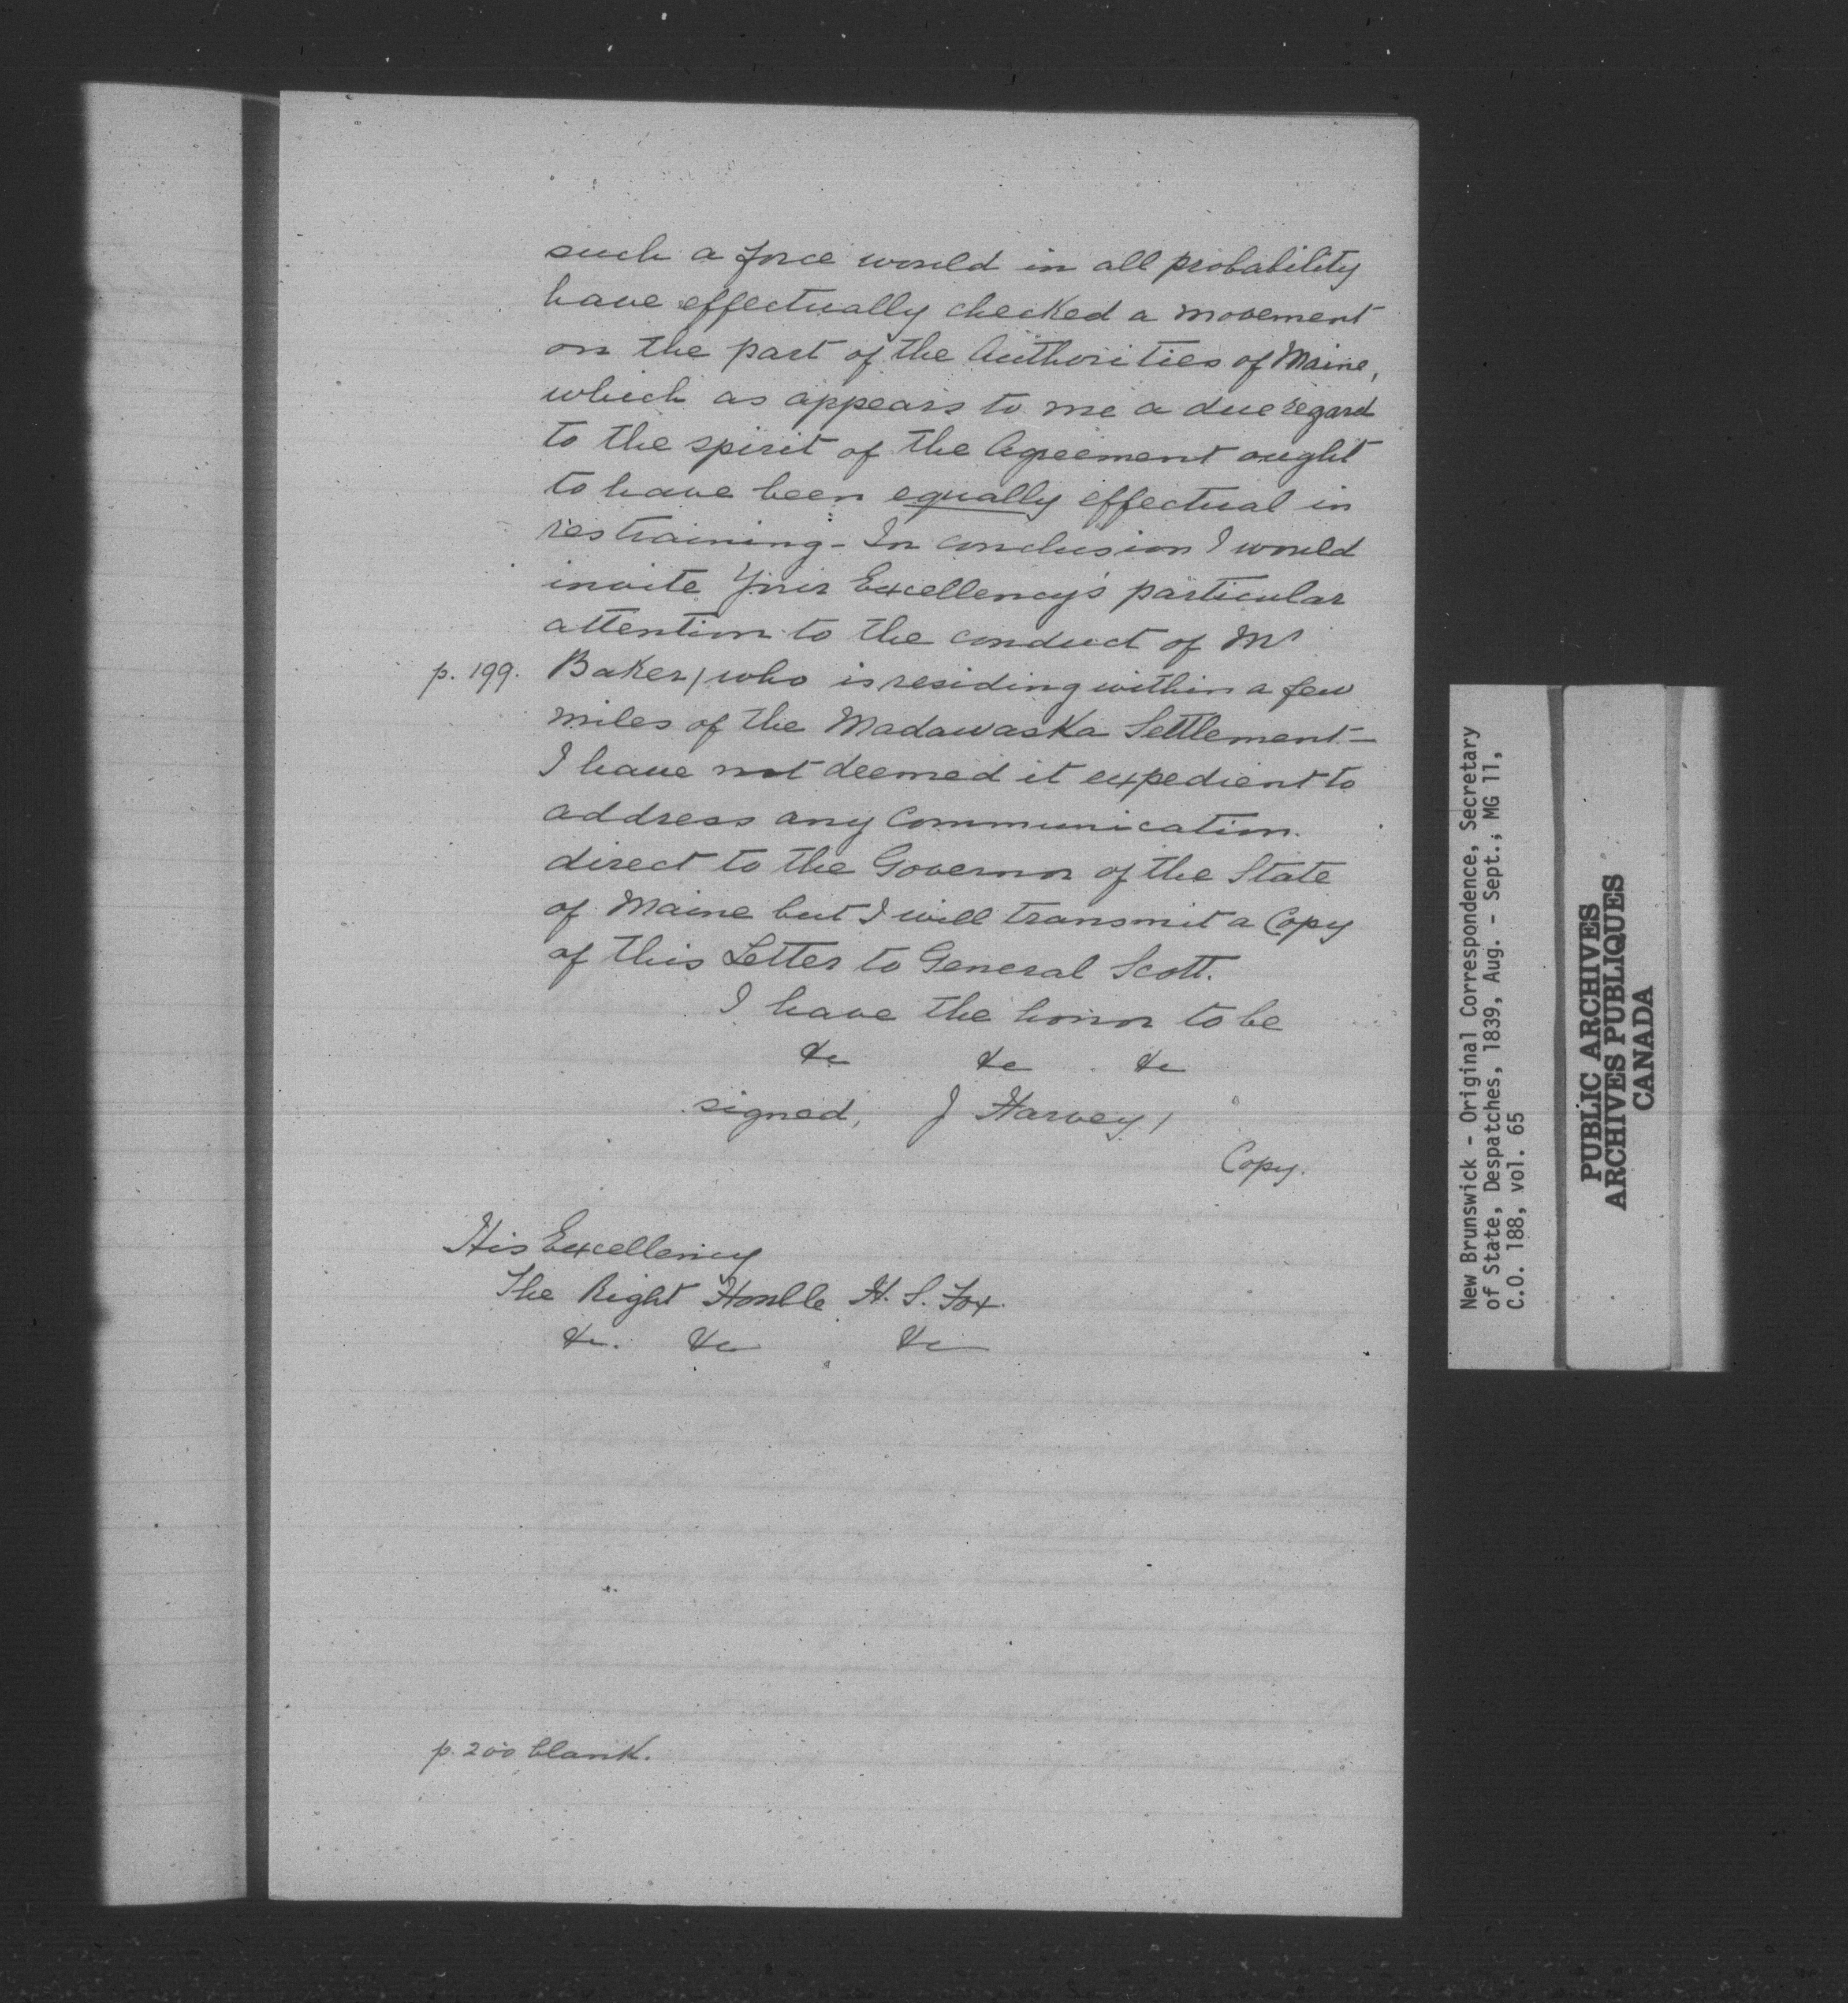 such a force would in all probability
have effectually checked a movement
on the part of the Authorities of Maine,
which as appears to me a due regard
to the spirit of the Agreement ought
to have been equally effectual in
restraining - In conclusion I would
invite Your Excellency's particular
attention to the conduct of Mr
p. 199. Baker, who is residing within a few
miles of the Madawaska Settlement. -
I have not deemed it expedient to
address any Communication.
direct to the Governor of the State
of Maine but I will transmit a Copy
of this Letter to General Scott.
I have the honor to be
&c &c &c
signed, J Harvey,
Copy.
His Excellency
The Right Honble H. S. Fox.
&c. &c &c
p. 200 blank.
New Brunswick - Original Correspondence, Secretary
of State, Despatches, 1839, Aug. - Sept.; MG 11,
C.O. 188, vol. 65
PUBLIC ARCHIVES
ARCHIVES PUBLIQUES
CANADA